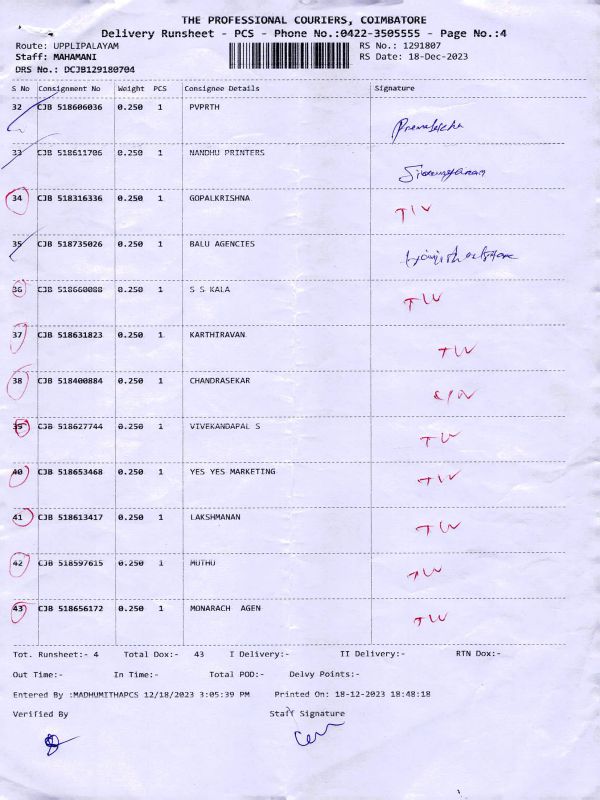 THE PROFESSIONAL COURIERS, COIMBATORE
Delivery Runsheet - PCS - Phone No.:0422-3505555 - Page No.:4
Route: UPPLIPALAYAM RS No.: 1291807
Staff: MAHAMANI RS Date: 18-Dec-2023
DRS No.: DCJB129180704
S No Consignment No Weight PCS Consignee Details Signature
32 CJB 518606036 0.250 1 PVPRTH
33 CJB 518611706 0.250 1 NANDHU PRINTERS
34 CJB 518316336 0.250 1 GOPALKRISHNA
35 CJB 518735026 0.250 1 BALU AGENCIES
36 CJB 518660088 0.250 1 S S KALA
37 CJB 518631823 0.250 1 KARTHIRAVAN
38 CJB 518400884 0.250 1 CHANDRASEKAR
39 CJB 518627744 0.250 1 VIVEKANDAPAL S
40 CJB 518653468 0.250 1 YES YES MARKETING
41 CJB 518613417 0.250 1 LAKSHMANAN
42 CJB 518597615 0.250 1 MUTHU
43 CJB 518656172 0.250 1 MONARACH AGEN
Tot. Runsheet:- 4 Total Dox:- 43 I Delivery:- II Delivery:- RTN Dox:-
Out Time:- In Time:- Total POD:- Delvy Points:-
Entered By :MADHUMITHAPCS 12/18/2023 3:05:39 PM Printed On: 18-12-2023 18:48:18
Verified By Staff Signature